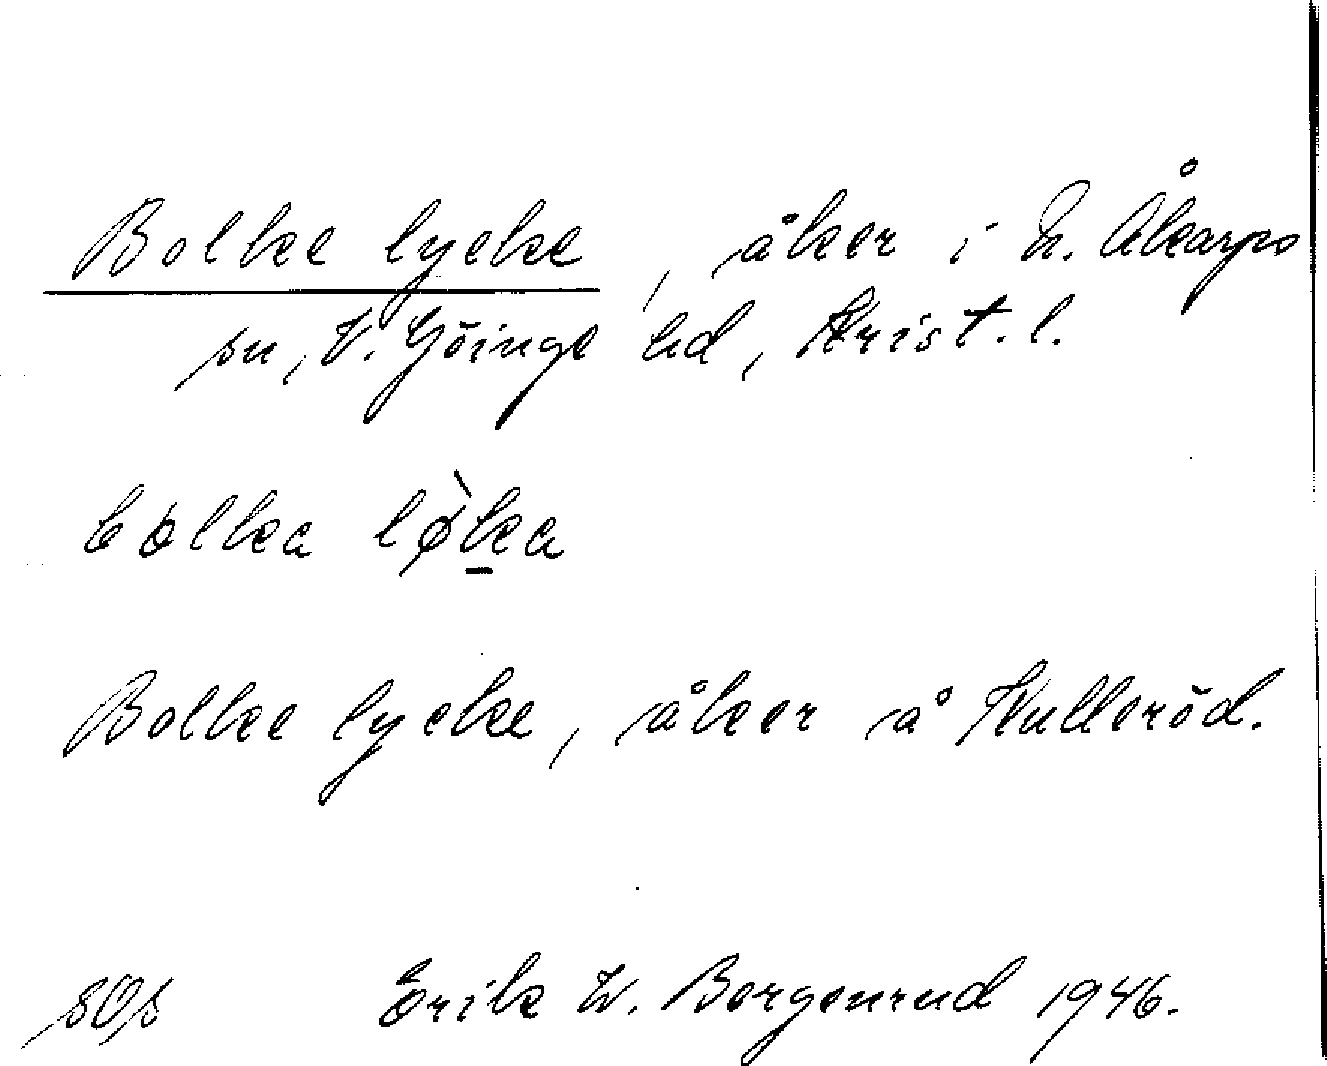 Bolke lycke, åker i N. Åkarps
sn, V. Göinge hd, Krist. l.
bolka lø̀ka
Bolke lycke, åker å Kulleröd.
Erik W. Bergenrud 1946.